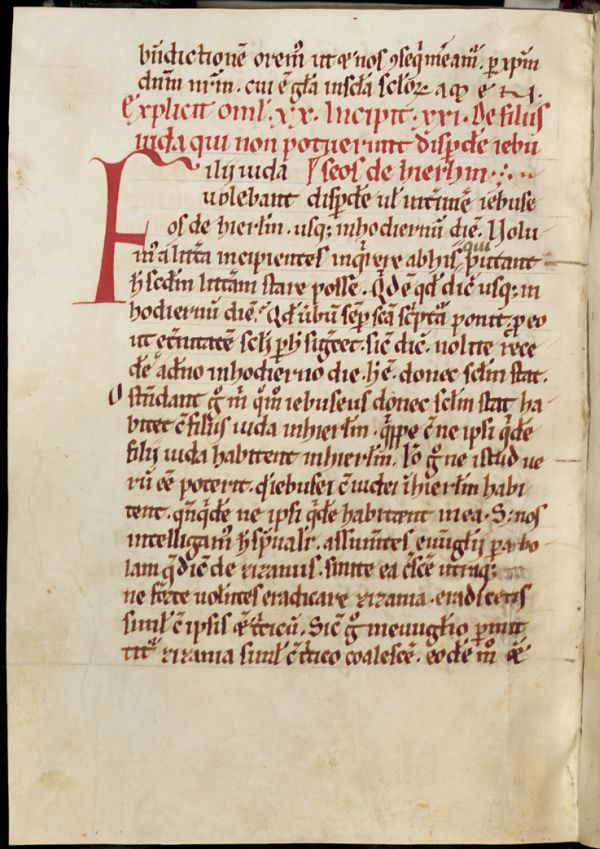 bn̄dictionē orem᷒ ut & nos ꝯseq̄ mēam᷒ . ꝑ xp̄m
dn̄m nr̄m . cui ē gl̄a in scl̄a scl̄oꝝ am̄
Explicit omł . XX . Incipit . XXI . De filiis
iuda qui non potuerunt disꝑde᷒ iebu
ilij iuda seos de hierl̄m
F uolebant disꝑde᷒ uł int̄imē iebuse
os de hierl̄m . usq; in hodiernū diē . Nolu
m᷒ a litt̄a incipientes inq̄rere ab his qui putant
h̄ scd̄m litt̄am stare posse . Qd̄ ē qd̄ dic̄ usq; in
hodiernū diē . Qd̄ ūbū semꝑ scā sc̄ptā ponit . ꝓ eo
ut et̄nitatē scł̄i ꝑ h̄ sig̅cet . sic̄ dic̄ . nolite rēce
dē a dn̄o in hodierno die . h̄ ē . donec scl̄m stat .
Ostn̄dant g° m̄ q°m᷒ iebuseus donec scl̄m stat ha
bitet c̄ filiis iuda in hierl̄m . q̄ppe c̄ ne ipsi q̄dē
filij iuda habitent in hierl̄m . Iō g° ne istud ue
rū eē poterit . q iebusei c̄ iudeis i hierl̄m habi
tent . qn̄q̄dē ne ipsi q̄dē habitant in ea . S; nos
intelligam᷒ h̄ sp̄ualr̄ . assumtēs euu̅glij ꝑabo
lam q̄ dic̄ē de zizaniis . sinite ea c̄scē utraq;
ne forte uolētes eradicare zizania . eradicetis
simł c̄ ipsis & t̄ticū . Sic̄ g° in euu̅glio ꝑmit
tit᷒ zizania simł c̄ t̄tico coalescē . eodē m° &